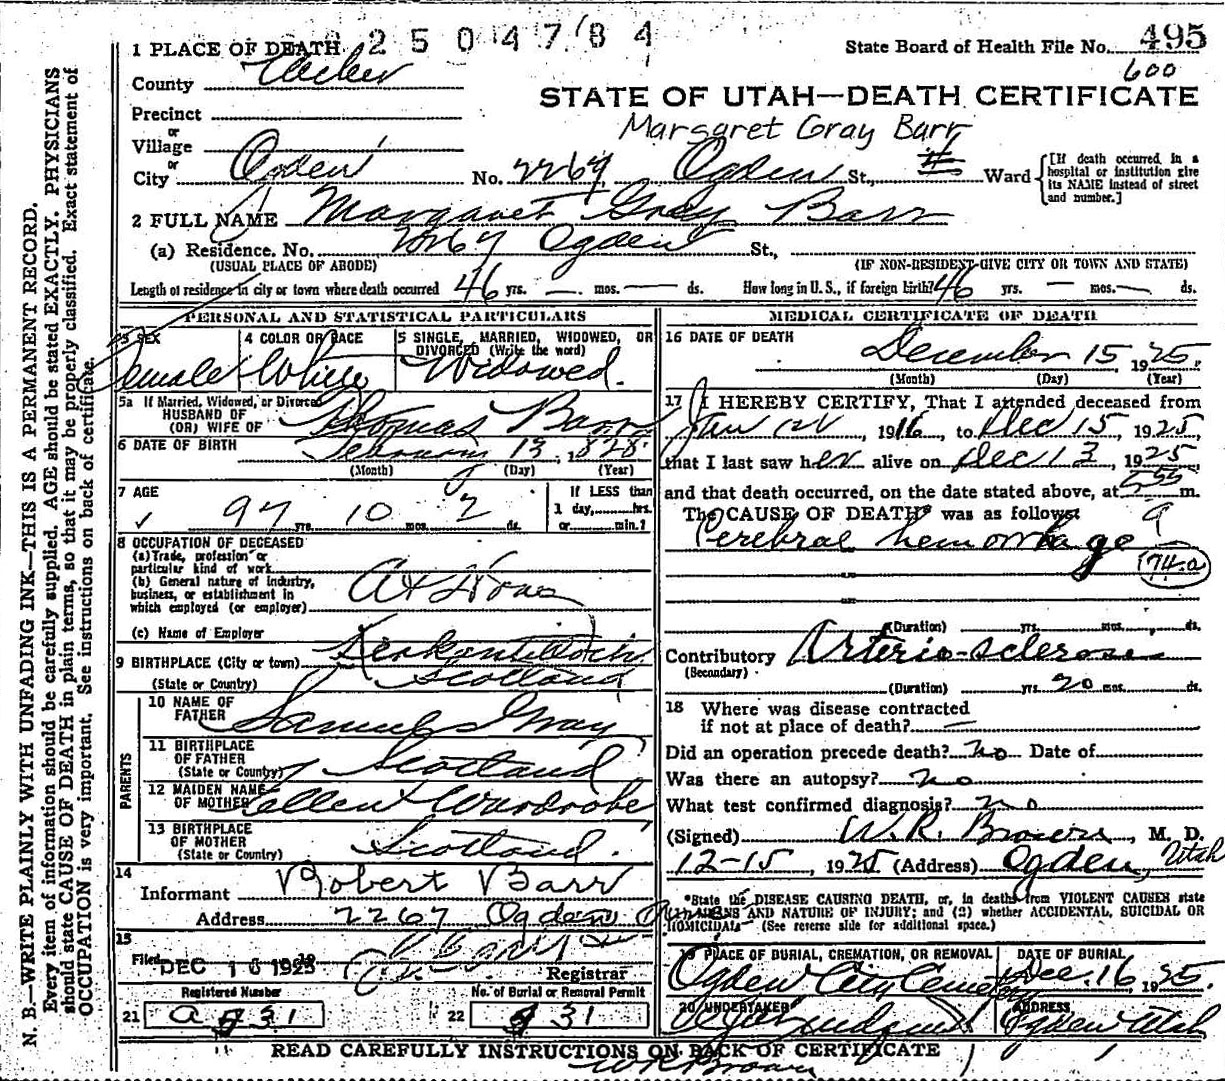 2504784
State Board of Health File No. 495
600
STATE OF UTAH—DEATH CERTIFICATE
Margaret Gray Barr
1 PLACE OF DEATH
County Weber
Precinct
or
Village
or
City Ogden No. 2267 Ogden St., Ward
[If death occurred in a hospital or institution give its NAME instead of street and number.]
2 FULL NAME Margaret Gray Barr
(a) Residence. No. 2267 Ogden St.,
(USUAL PLACE OF ABODE) (IF NON-RESIDENT GIVE CITY OR TOWN AND STATE)
Length of residence in city or town where death occurred 46 yrs. — mos. — ds. How long in U. S., if foreign birth? 46 yrs. — mos. — ds.
PERSONAL AND STATISTICAL PARTICULARS
3 SEX
Female
4 COLOR OR RACE
White
5 SINGLE, MARRIED, WIDOWED, OR DIVORCED (Write the word)
Widowed.
5a If Married, Widowed, or Divorced
HUSBAND OF
(OR) WIFE OF Thomas Barr
6 DATE OF BIRTH February 13, 1828.
(Month) (Day) (Year)
7 AGE
97 yrs. 10 mos. 2 ds.
If LESS than
1 day, hrs.
or min.?
8 OCCUPATION OF DECEASED
(a) Trade, profession or
particular kind of work
(b) General nature of industry,
business, or establishment in
which employed (or employer) At Home
(c) Name of Employer
9 BIRTHPLACE (City or town)
(State or Country) Scotland
PARENTS
10 NAME OF
FATHER Samuel Gray
11 BIRTHPLACE
OF FATHER
(State or Country) Scotland
12 MAIDEN NAME
OF MOTHER Ellen Wardrobe
13 BIRTHPLACE
OF MOTHER
(State or Country) Scotland.
14
Informant Robert Barr
Address 2267 Ogden
15
Filed DEC 16 1925
Registrar
Registered Number
21 a 931
No. of Burial or Removal Permit
22 931
MEDICAL CERTIFICATE OF DEATH
16 DATE OF DEATH
December 15 1925.
(Month) (Day) (Year)
17 I HEREBY CERTIFY, That I attended deceased from
1916, to Dec 15, 1925,
that I last saw her alive on Dec 13, 1925
and that death occurred, on the date stated above, at m.
The CAUSE OF DEATH* was as follows:
Cerebral hemorrhage
74-a
(Duration) yrs. mos. ds.
Contributory Arterio-sclerosis
(Secondary)
(Duration) yrs. 20 mos. ds.
18 Where was disease contracted
if not at place of death? —
Did an operation precede death? no Date of
Was there an autopsy? no
What test confirmed diagnosis? no
(Signed) W.R. Brown, M. D.
12-15, 1925 (Address) Ogden, Utah
*State the DISEASE CAUSING DEATH, or, in deaths from VIOLENT CAUSES state
MEANS AND NATURE OF INJURY; and (2) whether ACCIDENTAL, SUICIDAL OR
HOMICIDAL (See reverse side for additional space.)
19 PLACE OF BURIAL, CREMATION, OR REMOVAL
Ogden City Cemetery
DATE OF BURIAL
Dec. 16, 1925.
20 UNDERTAKER
ADDRESS
Ogden Utah
READ CAREFULLY INSTRUCTIONS ON BACK OF CERTIFICATE
W R Brown
N. B.—WRITE PLAINLY WITH UNFADING INK—THIS IS A PERMANENT RECORD.
Every item of information should be carefully supplied. AGE should be stated EXACTLY. PHYSICIANS
should state CAUSE OF DEATH in plain terms, so that it may be properly classified. Exact statement of
OCCUPATION is very important. See instructions on back of certificate.